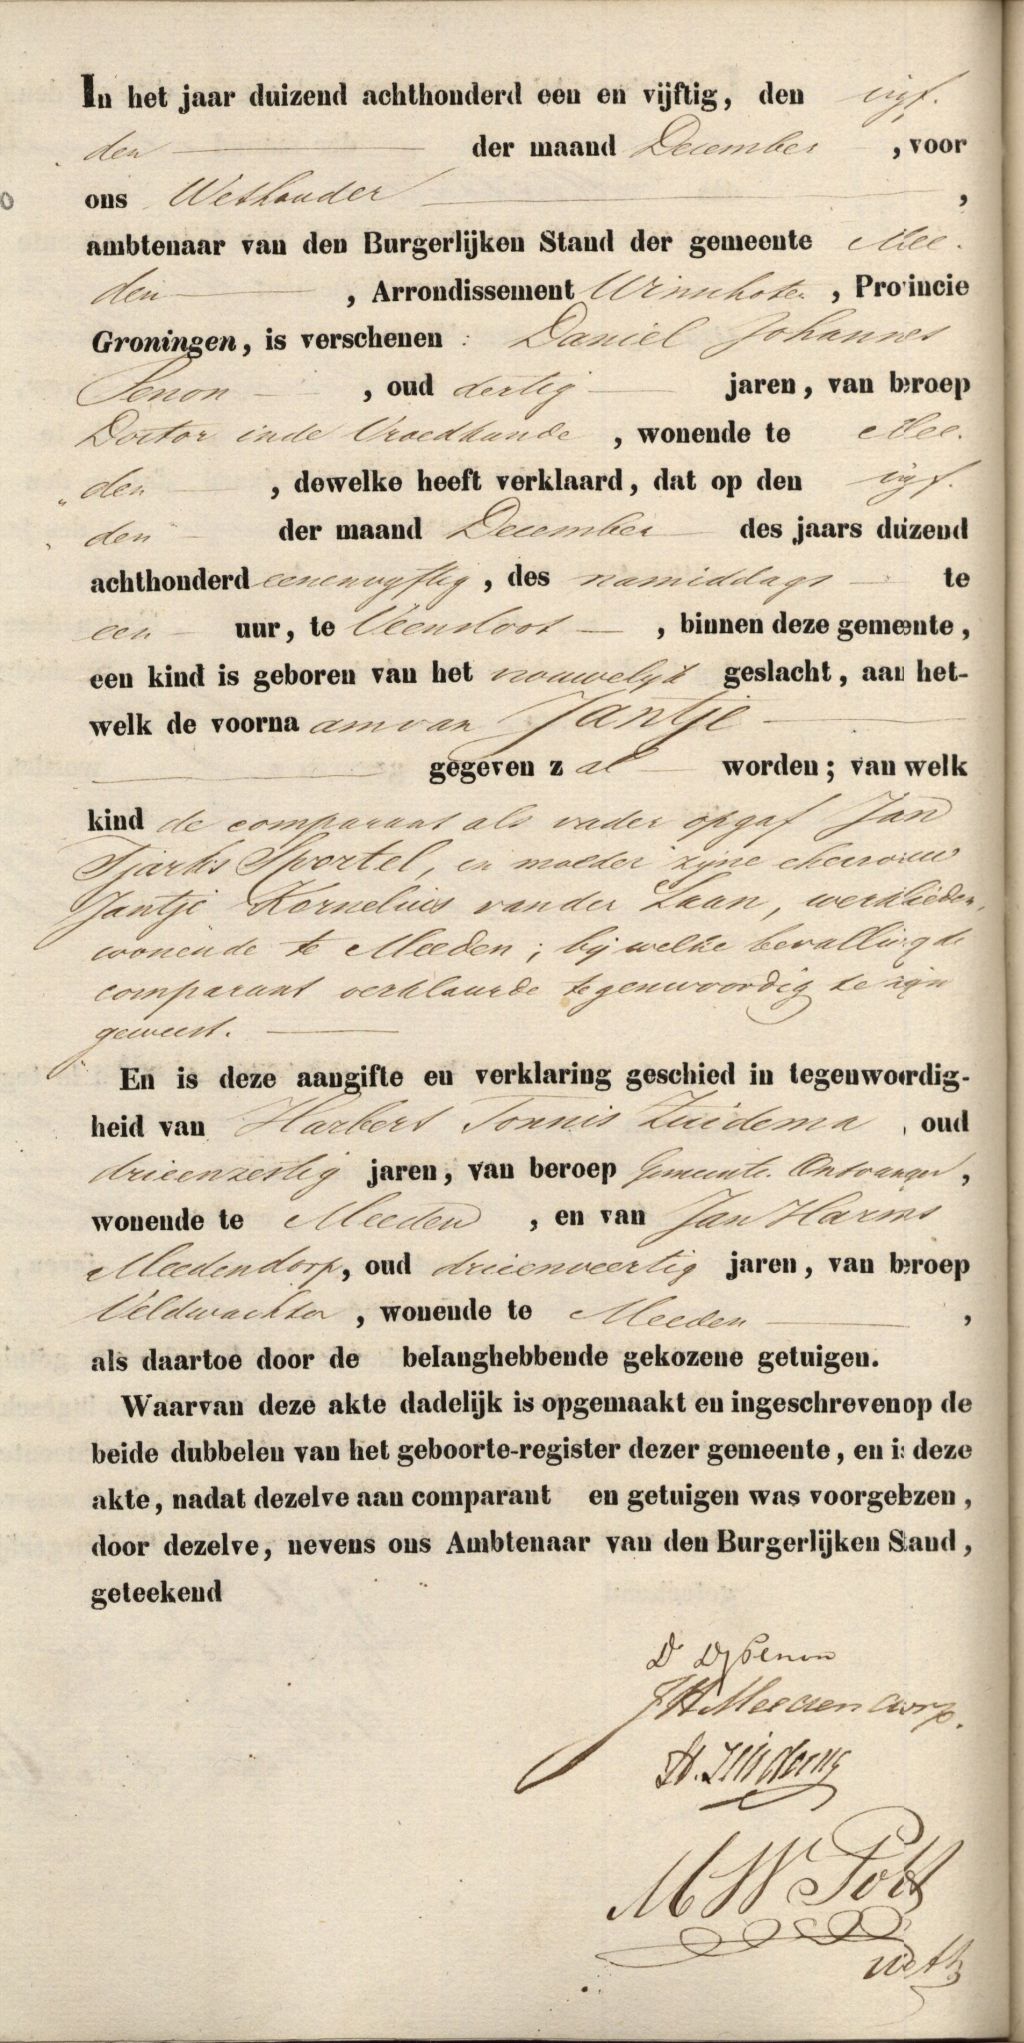 In het jaar duizend achthonderd een en vijftig, den vijf-
den der maand December, voor
ons Wethouder,
ambtenaar van den Burgerlijken Stand der gemeente Mee-
den, Arrondissement Winschoten, Provincie
Groningen, is verschenen: Daniel Johannes
Penon, oud dertig jaren, van beroep
Doctor in de Vroedkunde, wonende te Mee-
den, dewelke heeft verklaard, dat op den vijf-
den der maand December des jaars duizend
achthonderd eenenvyftig, des namiddags te
een uur, te Veensloot, binnen deze gemeente,
een kind is geboren van het vrouwelyk geslacht, aan het-
welk de voornaam van Jantje
gegeven zal worden; van welk
kind de comparant als vader opgaf Jan
Tjarks Sportel, en moeder zijne ehevrouw
Jantje Kornelius van der Laan, werklieden,
wonende te Meeden; bij welke bevalling de
comparant verklaarde tegenwoordig te zijn
geweest.
En is deze aangifte en verklaring geschied in tegenwoordig-
heid van Harbert Tonnis Zuidema, oud
drieenzestig jaren, van beroep Gemeente Ontvanger,
wonende te Meeden, en van Jan Harms
Meedendorp, oud drieenveertig jaren, van beroep
Veldwachter, wonende te Meeden,
als daartoe door de belanghebbende gekozene getuigen.
Waarvan deze akte dadelijk is opgemaakt en ingeschreven op de
beide dubbelen van het geboorte-register dezer gemeente, en is deze
akte, nadat dezelve aan comparant en getuigen was voorgelezen,
door dezelve, nevens ons Ambtenaar van den Burgerlijken Stand,
geteekend
Dr DJ Penon
JH Meedendorp.
H. Zuidema
M W Pott
Weth